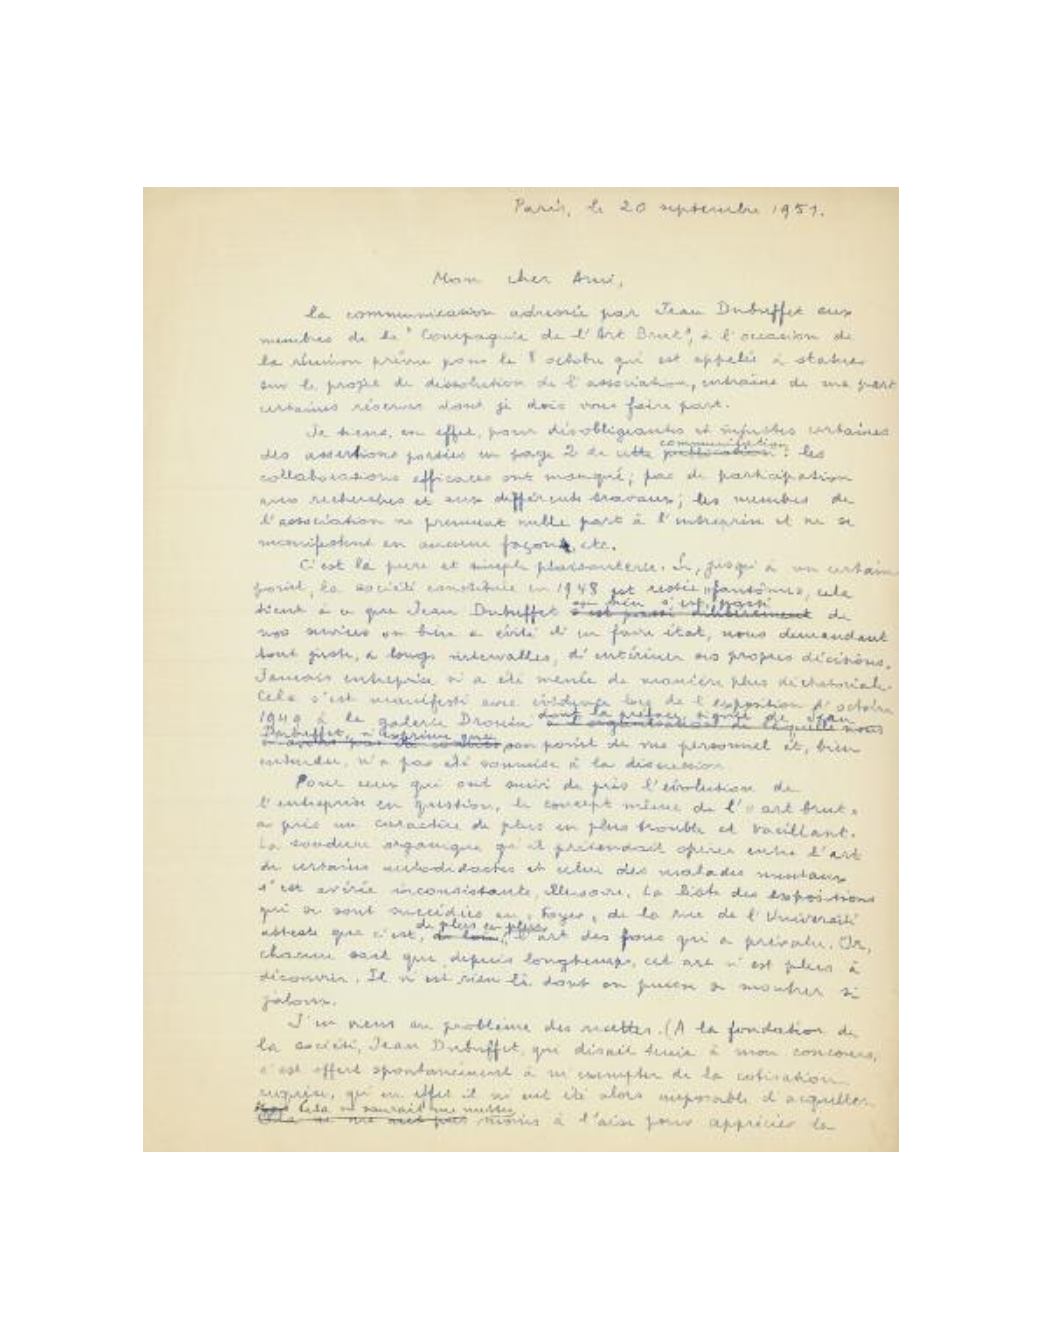 Paris, le 20 septembre 1951.
Mon cher Ami,
la communication adressée par Jean Dubuffet aux
membres de la "Compagnie de l'Art Brut", à l'occasion de
la réunion prévue pour le 8 octobre qui est appelée à statuer
sur le projet de dissolution de l'association, entraîne de ma part
certaines réserves dont je dois vous faire part.
Je tiens, en effet, pour désobligeantes et injustes certaines
communication
des assertions portées en page 2 de cette publication : les
collaborations efficaces ont manqué ; pas de participation
aux recherches et aux différents travaux ; les membres de
l'association ne prennent nulle part à l'entreprise et ne se
manifestent en aucune façon, etc.
C'est là pure et simple plaisanterie. Si, jusqu'à un certain
point, la société constituée en 1948 est restée "fantôme", cela
ou bien s'est passé
tient à ce que Jean Dubuffet s'est passé délibérément de
nos services ou bien a évité d'en faire état, nous demandant
tout juste, à longs intervalles, d'entériner ses propres décisions.
Jamais entreprise n'a été menée de manière plus dictatoriale.
Cela s'est manifesté avec évidence lors de l'exposition d'octobre
dont la préface, signée de Jean
1949 à la galerie Drouin à l'organisation de laquelle nous
Dubuffet, n'exprime que
n'avons pas été conviés son point de vue personnel et, bien
entendu, n'a pas été soumise à la discussion.
Pour ceux qui ont suivi de près l'évolution de
l'entreprise en question, le concept même de l'"art brut"
a pris un caractère de plus en plus trouble et vacillant.
La soudure organique qu'il prétendait opérer entre l'art
de certains autodidactes et celui des malades mentaux
s'est avérée inconsistante, illusoire. La liste des expositions
qui se sont succédées au "Foyer" de la rue de l'Université
de plus en plus,
atteste que c'est, de loin, l'art des fous qui a prévalu. Or,
chacun sait que, depuis longtemps, cet art n'est plus à
découvrir. Il n'est rien là dont on puisse se montrer si
jaloux.
J'en viens au problème des recettes. (A la fondation de
la société, Jean Dubuffet, qui disait tenir à mon concours,
s'est offert spontanément à m'exempter de la cotisation
requise, qu'en effet il m'eût été alors impossible d'acquitter.
Cela ne saurait me mettre
Cela ne me met pas moins à l'aise pour apprécier la